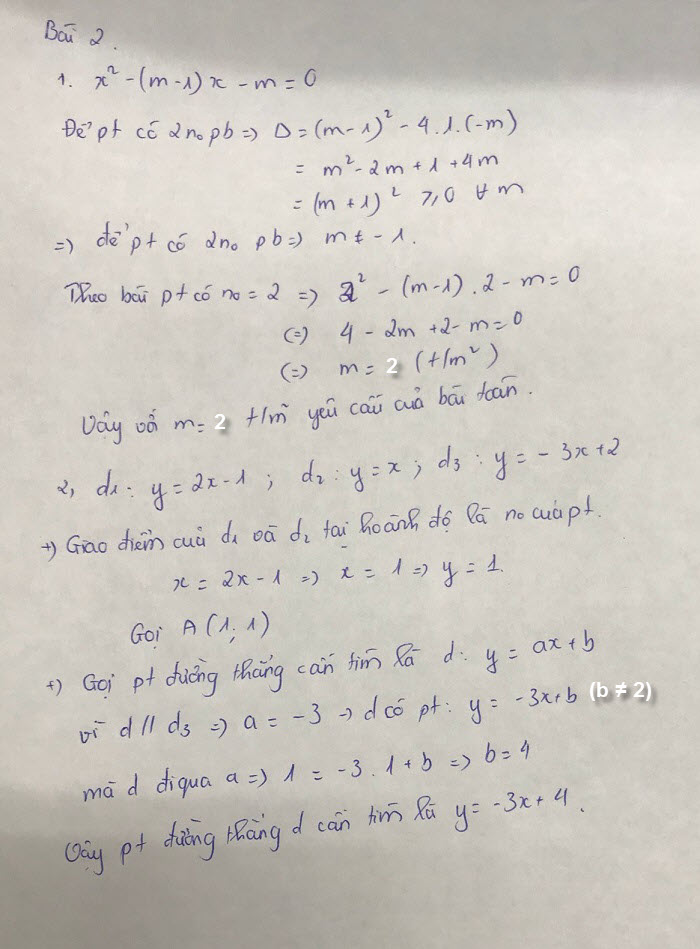 Bài 2.
1. x² - (m-1)x - m = 0
Để pt có 2 n₀ pb => Δ = (m-1)² - 4.1.(-m)
= m² - 2m + 1 + 4m
= (m+1)² ≥ 0 ∀ m
=> để pt có 2n₀ pb => m ≠ -1.
Theo bài pt có n₀ = 2 => 2² - (m-1).2 - m = 0
(=) 4 - 2m + 2 - m = 0
(=) m = 2 (t/m²)
Vậy với m = 2 t/m yêu cầu của bài toán.
2, d₁: y = 2x-1 ; d₂: y = x ; d₃: y = - 3x+2
+) Giao điểm của d₁ và d₂ tại hoành độ là n₀ của pt.
x = 2x - 1 => x = 1 => y = 1.
Gọi A (1; 1)
+) Gọi pt đường thẳng cần tìm là d: y = ax + b
vì d // d₃ => a = -3 → d có pt: y = -3x+b (b ≠ 2)
mà d đi qua a => 1 = -3.1 + b => b = 4
Vậy pt đường thẳng d cần tìm là y = -3x + 4.